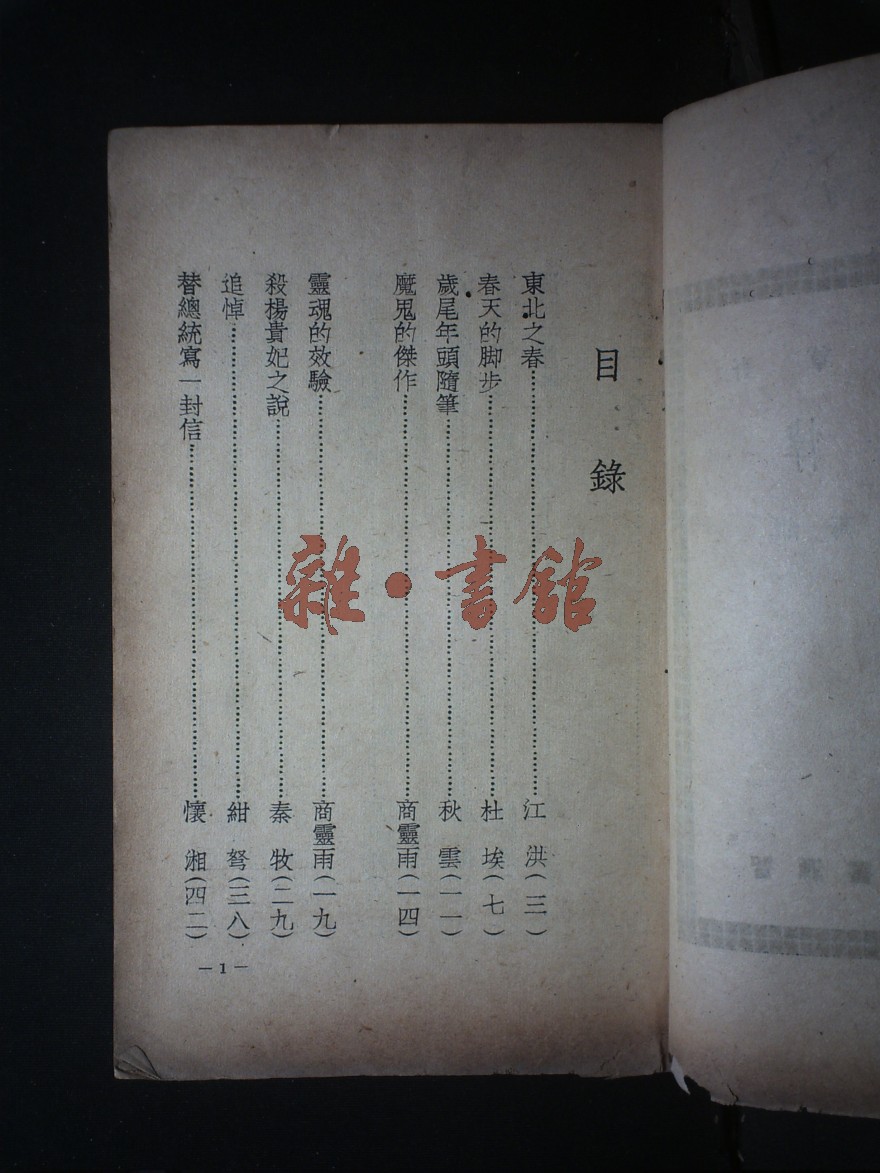 目錄
東北之春 江洪(三)
春天的脚步 杜埃(七)
歲尾年頭隨筆 秋雲(一一)
魔鬼的傑作 商靈雨(一四)
靈魂的效驗 商靈雨(一九)
殺楊貴妃之說 秦牧(二九)
追悼 紺弩(三八)
替總統寫一封信 懷湘(四二)
—1—
雜·書館